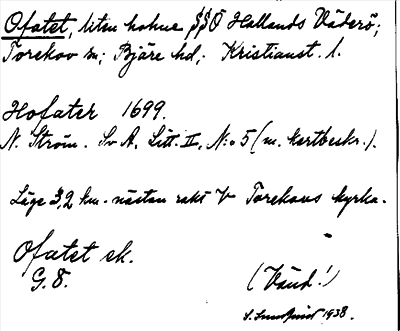 Ofatet, liten holme SSÖ Hallands Väderö;
Torekov sn; Bjäre hd; Kristianst. l.
Hofater 1699.
N. Ström. Sv A, Litt. II, N:o 5 (m. kartbeskr.).
Läge 3,2 km. nästan rakt V Torekovs kyrka.
Ofatet ek.
G. 8.
(Vänd!)
1938.